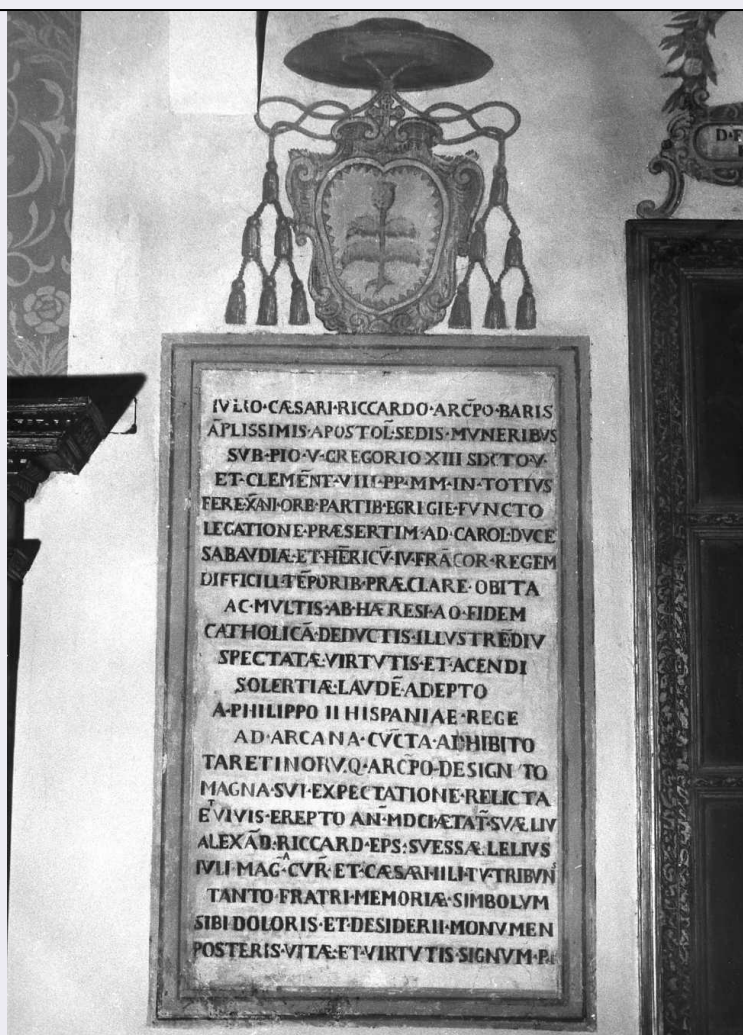 D·F
IVLIO·CÆSARI·RICCARDO·ARC̄PO·BARIS
ĀPLISSIMIS·APOSTOL̄·SEDIS·MVNERIBVS
SVB·PIO·V·GREGORIO XIII SIXTO·V·
ET·CLEMĒNT·VIII·PP·MM·IN·TOTIVS
FERE·X̄ANI·ORB·PARTIB·EGRIGIE·FVNCTO
LEGATIONE·PRÆSERTIM·AD·CAROL·DVCE
SABAVDIÆ·ET·HĒRICV̄·IV·FRĀCOR·REGEM
DIFFICILL·TĒPORIB·PRÆCLARE·OBITA
AC·MVLTIS·AB·HÆRESI·AO·FIDEM
CATHOLICĀ·DEDVCTIS·ILLVSTRĒ·DIV
SPECTATÆ·VIRTVTIS·ET·ACENDI
SOLERTIÆ·LAVDĒ·ADEPTO
A·PHILIPPO II HISPANIAE·REGE
AD·ARCANA·CVC̄TA·ADHIBITO
TARETINORV·Q·ARC̄PO·DESIGN TO
MAGNA·SVI·EXPECTATIONE·RELICTA
E VIVIS·EREPTO AN̄·MDCII·ÆTAT̄·SVÆ·LIV
ALEXĀD·RICCARD·EPS·SVESSÆ·LELIVS
IVLI·MAG̅·CVR̄·ET·CÆSAR·MILITV·TRIBVN
TANTO·FRATRI·MEMORIÆ·SIMBOLVM
SIBI DOLORIS·ET·DESIDERII·MONVMEN
POSTERIS·VITÆ·ET·VIRTVTIS·SIGNVM·P·